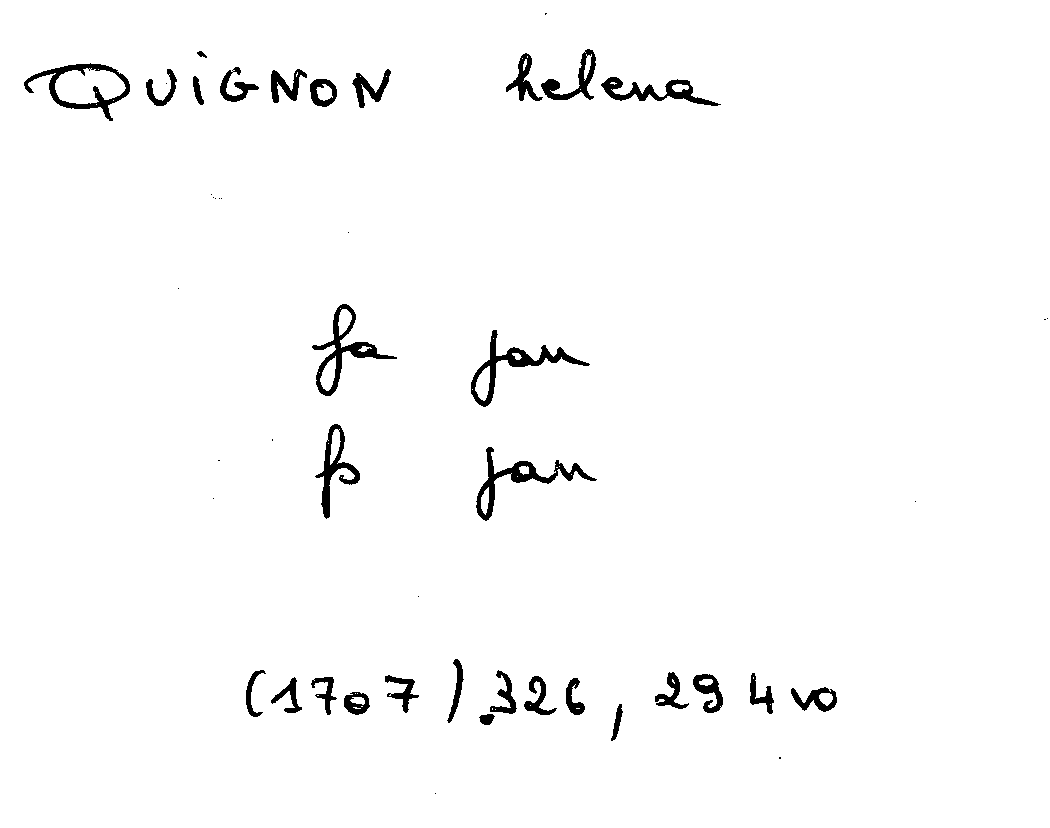 QUiGNON helena
fa jan
fs jan
(1707).326, 294vo